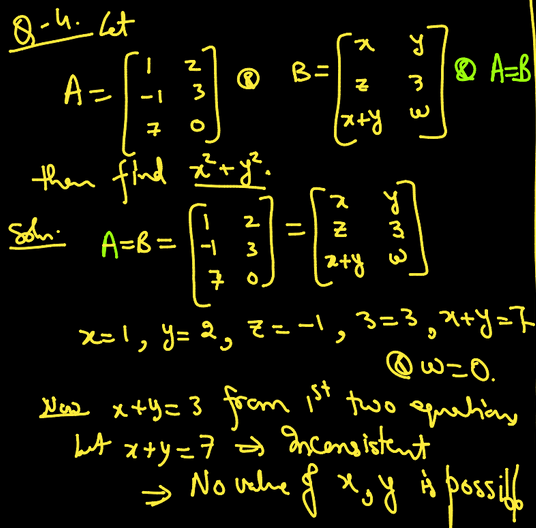 Q-4. Let
A = [1 2 -1 3 7 0] & B = [x y z 3 x+y w] & A=B
then find x²+y².
Soln. A=B = [1 2 -1 3 7 0] = [x y z 3 x+y w]
x=1, y=2, z=-1, 3=3, x+y=7
& w=0.
Now x+y=3 from 1st two equations
but x+y=7 ⇒ Inconsistent
⇒ No value of x, y is possible